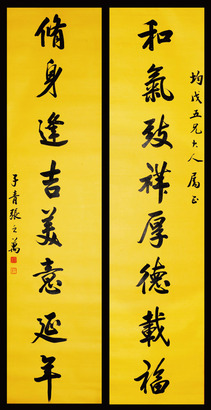 均戊五兄大人屬正
和氣致祥厚德載福
脩身逢吉美意延年
子青張之萬